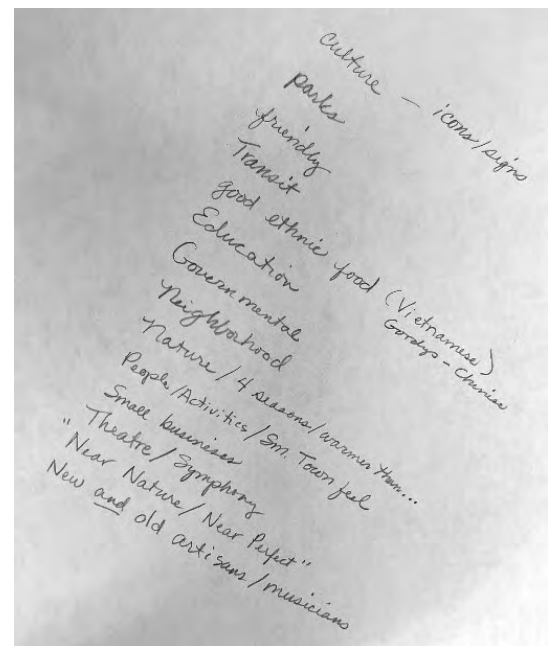 culture – icons/signs
parks
friendly
Transit
good ethnic food (Vietnamese)
Gordys - Chinese
Education
Governmental
Neighborhood
Nature / 4 seasons/warmer than...
People/Activities/Sm. Town feel
Small businesses
Theatre/Symphony
"Near Nature/Near Perfect"
New and old artisans/musicians